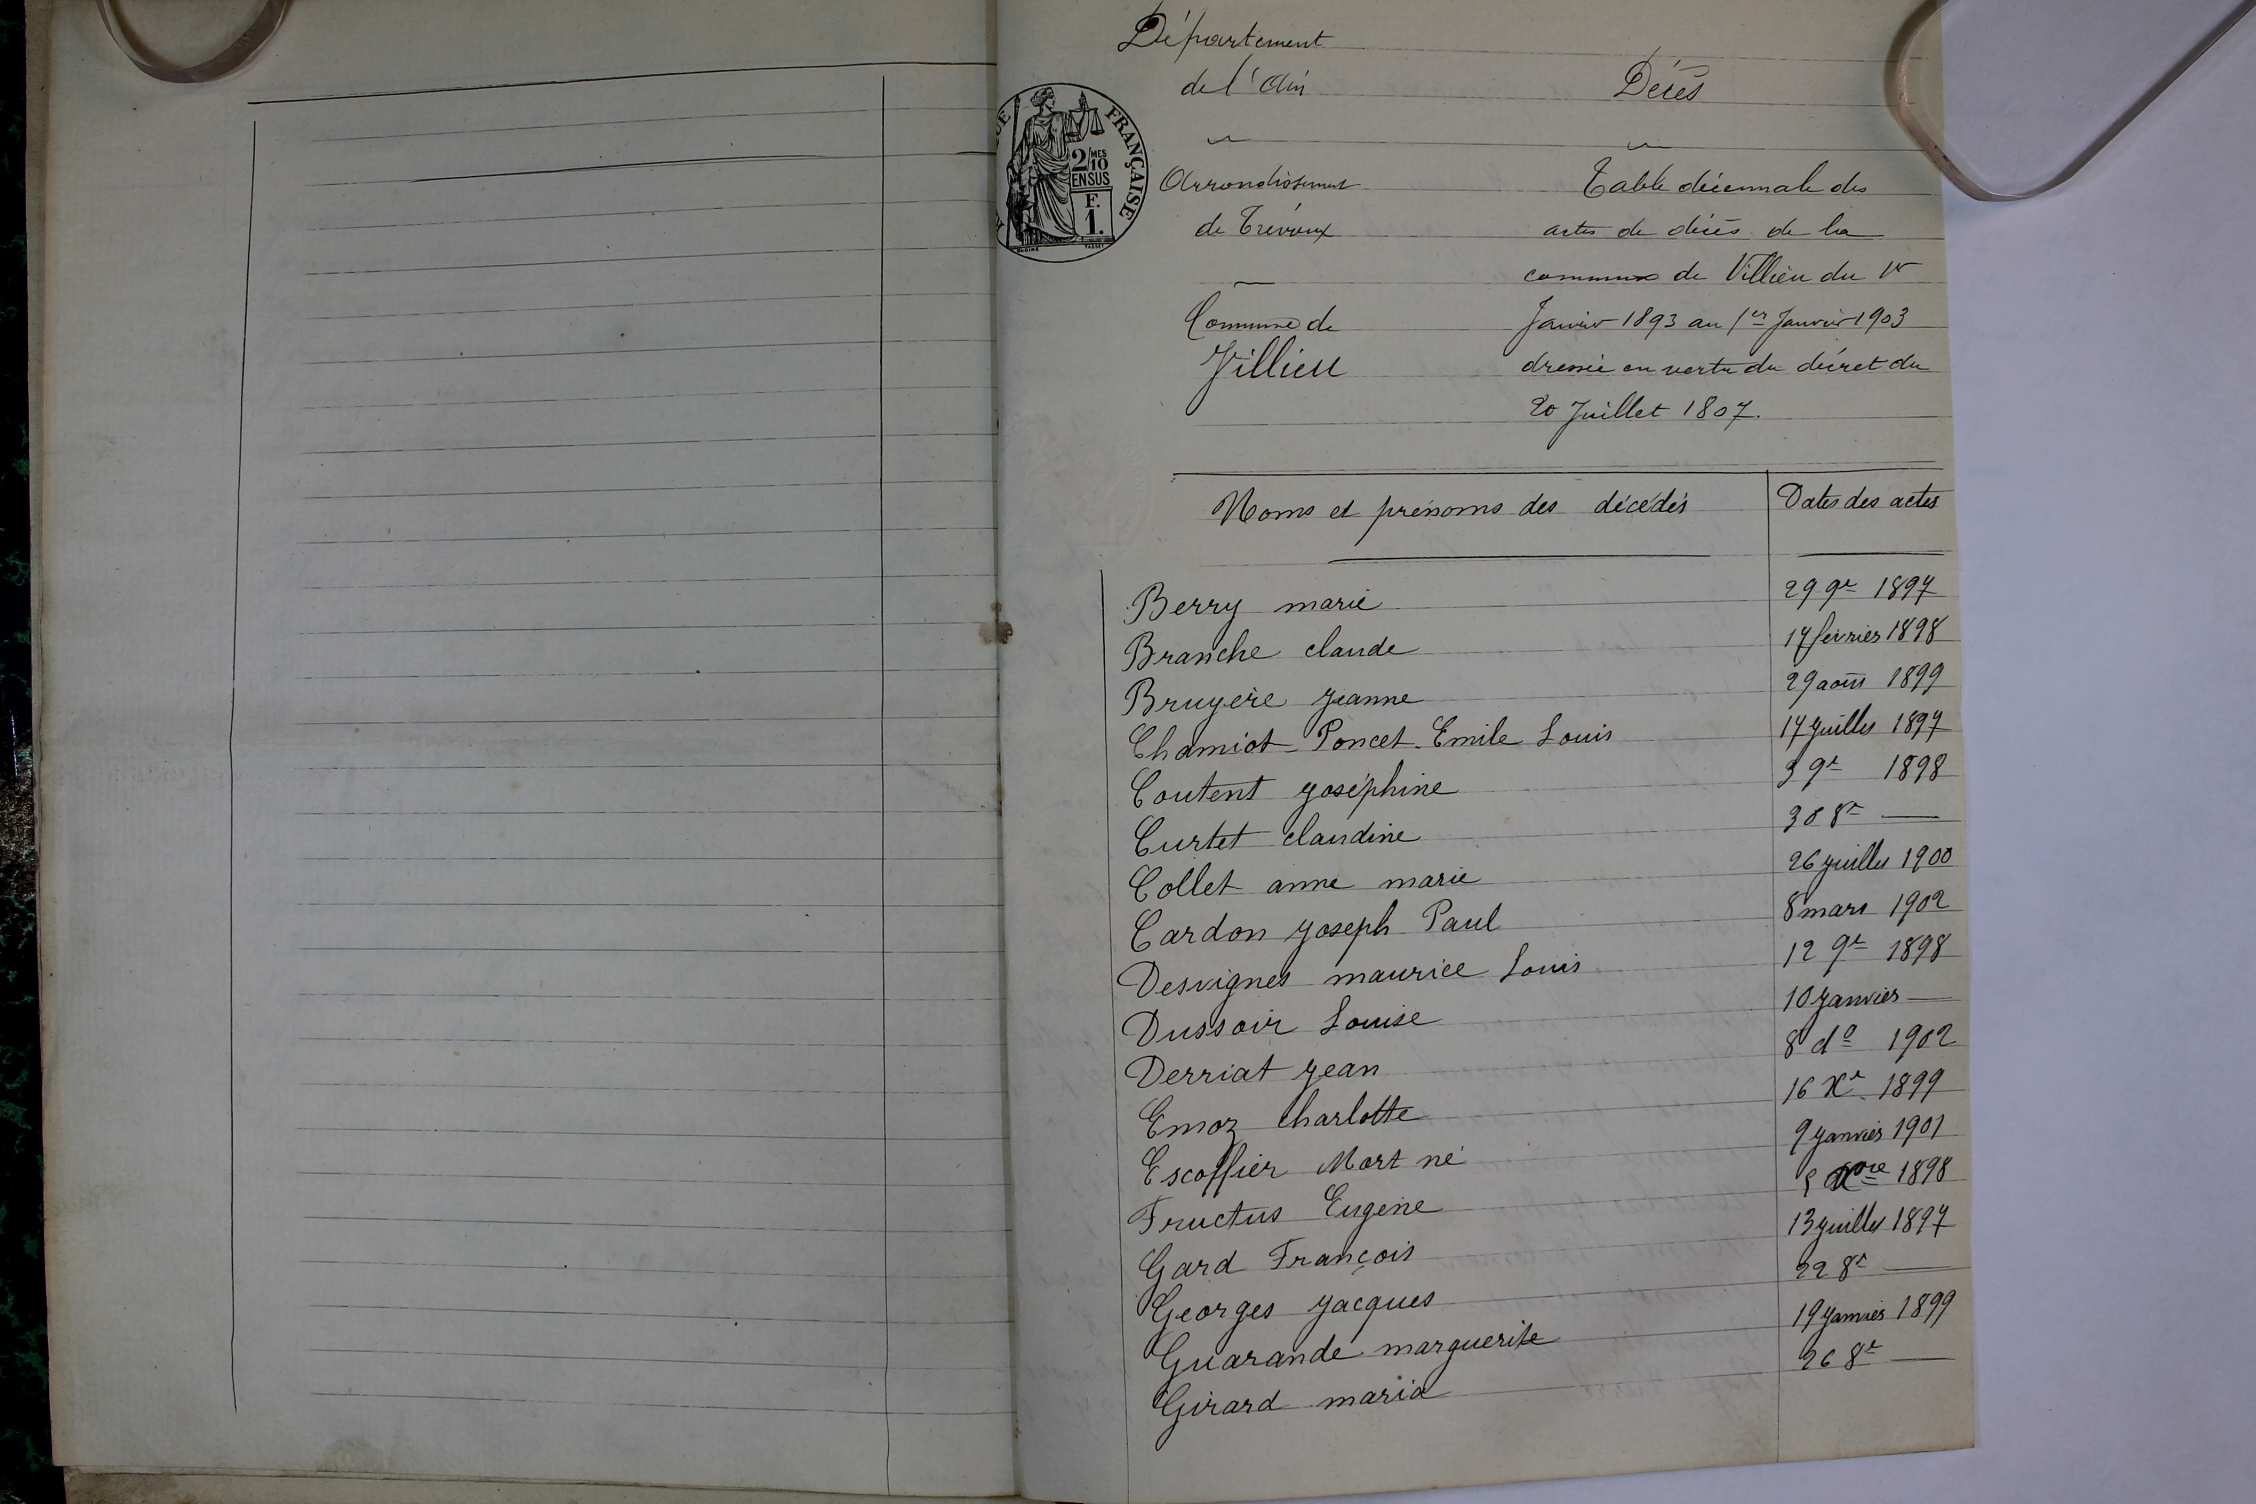 Département
de l'Ain
Arrondissement
de Trévoux
Commune de
Villieu
FRANÇAISE
2/10 MES
EN SUS
F.
1.
Décès
Table décennale des
actes de décès de la
commune de Villieu du 1er
Janvier 1893 au 1er Janvier 1903
dressée en vertu du décret du
20 Juillet 1807.
Noms et prénoms des décédés Dates des actes
Berry marie 29 9re 1897
Branche claude 17 février 1898
Bruyère jeanne 29 août 1899
Chamiot-Poncet Emile Louis 17 juillet 1897
Coutent joséphine 3 9re 1898
Curtet claudine 30 8re —
Collet anne marie 26 juillet 1900
Cardon joseph Paul 8 mars 1902
Desvignes maurice Louis 12 9re 1898
Dussoir Louise 10 janvier —
Derriat jean 8 do 1902
Emoz charlotte 16 Xre 1899
Escoffier Mort né 9 janvier 1901
Fructus Eugène 5 Xbre 1898
Gard François 13 juillet 1897
Georges jacques 22 8re —
Guarande marguerite 19 janvier 1899
Girard maria 26 8re —